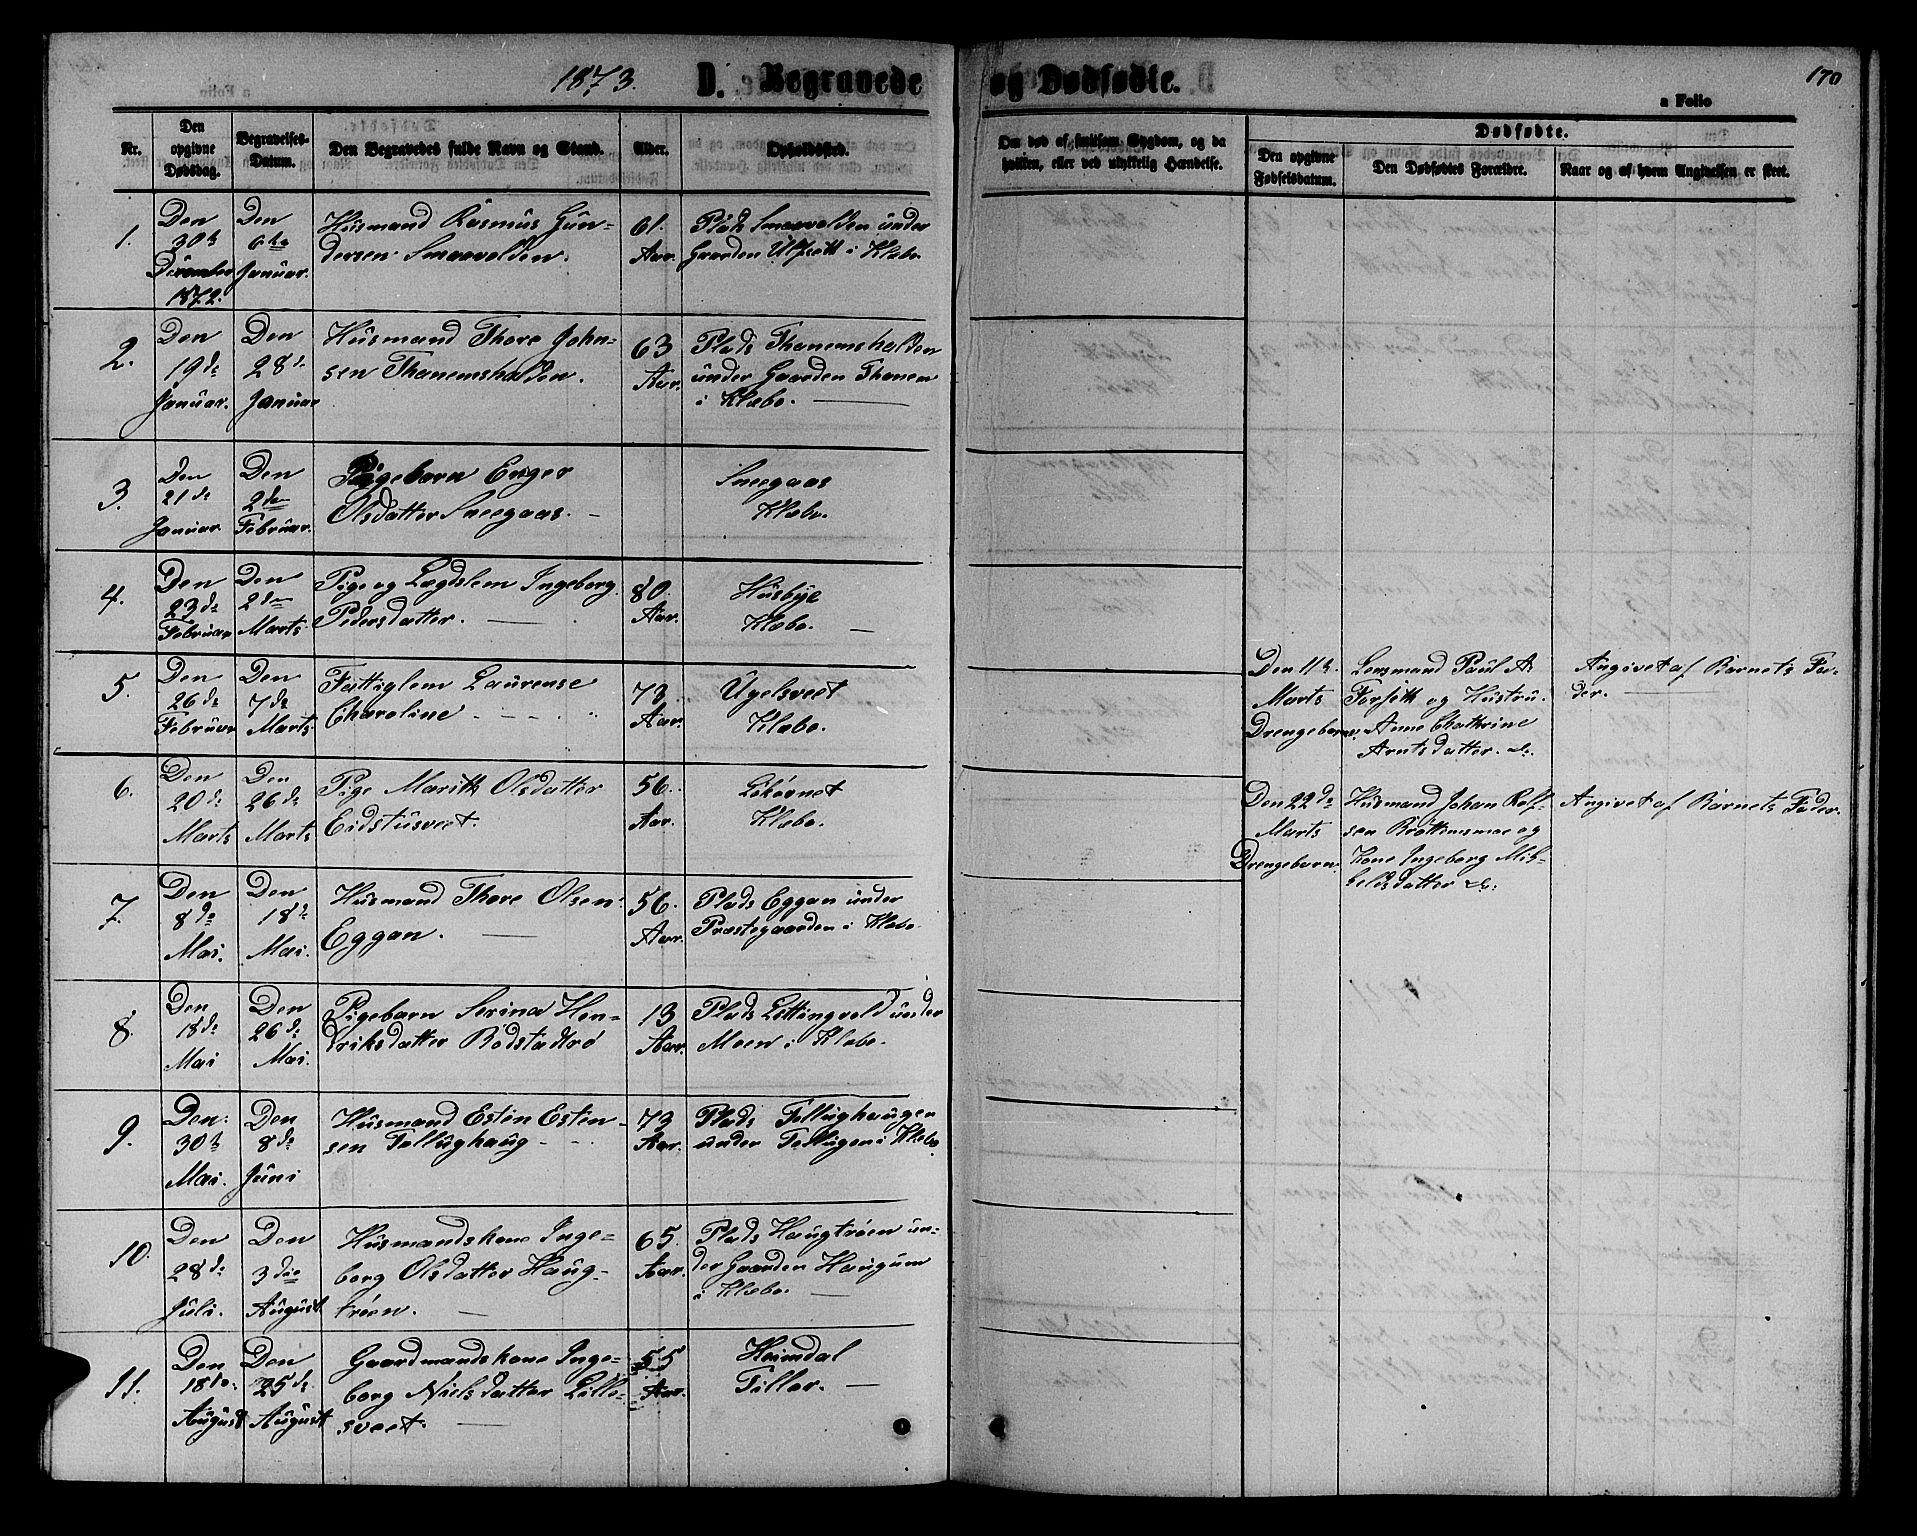 1873. D. Begravede og Dødfødte. 170
a Folio
Nr.
Den opgivne Dødsdag.
Begravelses-Datum.
Den Begravedes fulde Navn og Stand.
Alder.
Opholdssted.
Om død af smitsom Sygdom, og da hvilken, eller ved ulykkelig Hændelse.
Dødfødte.
Den opgivne Fødselsdatum.
Den Dødfødtes Forældre.
Naar og af hvem Angivelsen er skeet.
1.
Den
30te
December
1872.
Den
6te
Januar.
Husmand Rasmus Gun-
dersen Smaavolden.
61.
Aar.
Plads Smaavolden under
Gaarden Ulset i Klæbo
2.
Den
19de
Januar.
Den
28de
Januar
Husmand Thore John-
sen Thanemshalden.
63
Aar.
Plads Thanemshalden
under Gaarden Thanem
i Klæbo.
3.
Den
21de
Januar.
Den
2den
Februar.
Pigebarn Enger
Olsdatter Sneegaas.
Sneegaas
Klæbo.
4.
Den
23de
Februar
Den
2den
Marts.
Pige og Lægdslem Ingeborg
Pedersdatter.
80.
Aar.
Husbye
Klæbo.
5.
Den
26de
Februar
Den
7de
Marts.
Fattiglem Laurense
Charoline
73.
Aar.
Ugelsveet
Klæbo.
6.
Den
20de
Marts
Den
26de
Marts
Pige Marith Olsdatter
Eidstusveet.
56.
Aar.
Klæbo.
7.
Den
8de
Mai.
Den
18de
Mai.
Husmand Thore Olsen
Eggan.
56.
Aar.
Plads Eggan under
Præstegaarden i Klæbo.
8.
Den
18de
Mai
Den
26de
Mai.
Pigebarn Serina Hen-
driksdatter Rødstadtrø
13
Aar.
Plads Littingvold under
Moen i Klæbo.
9.
Den
30te
Mai.
Den
8de
Juni
Husmand Esten Esten-
sen Tellughaug
73
Aar.
Plads Tellughaugen
under Tellugen i Klæbo
10.
Den
28de
Juli.
Den
3die
August
Husmandskone Inge-
borg Olsdatter Haug-
trøen.
65.
Aar.
Plads Haugtrøen un-
der Gaarden Haugum
i Klæbo.
11.
Den
18de
August
Den
25de
August
Gaardmandskone Inge-
borg Nielsdatter Lille-
sveet.
55
Aar.
Heimdal
Tiller.
Den 11te
Marts
Drengebarn.
Lensmand Paul A.
Forseth og Hustru
Anne Chathrine
Arntsdatter.
Angivet af Barnets Fa-
der.
Den 22de
Marts
Drengebarn.
Husmand Johan Rolf-
sen Brøttemsmoe og
Kone Ingeborg Mik-
kelsdatter
Angivet af Barnets Fader.